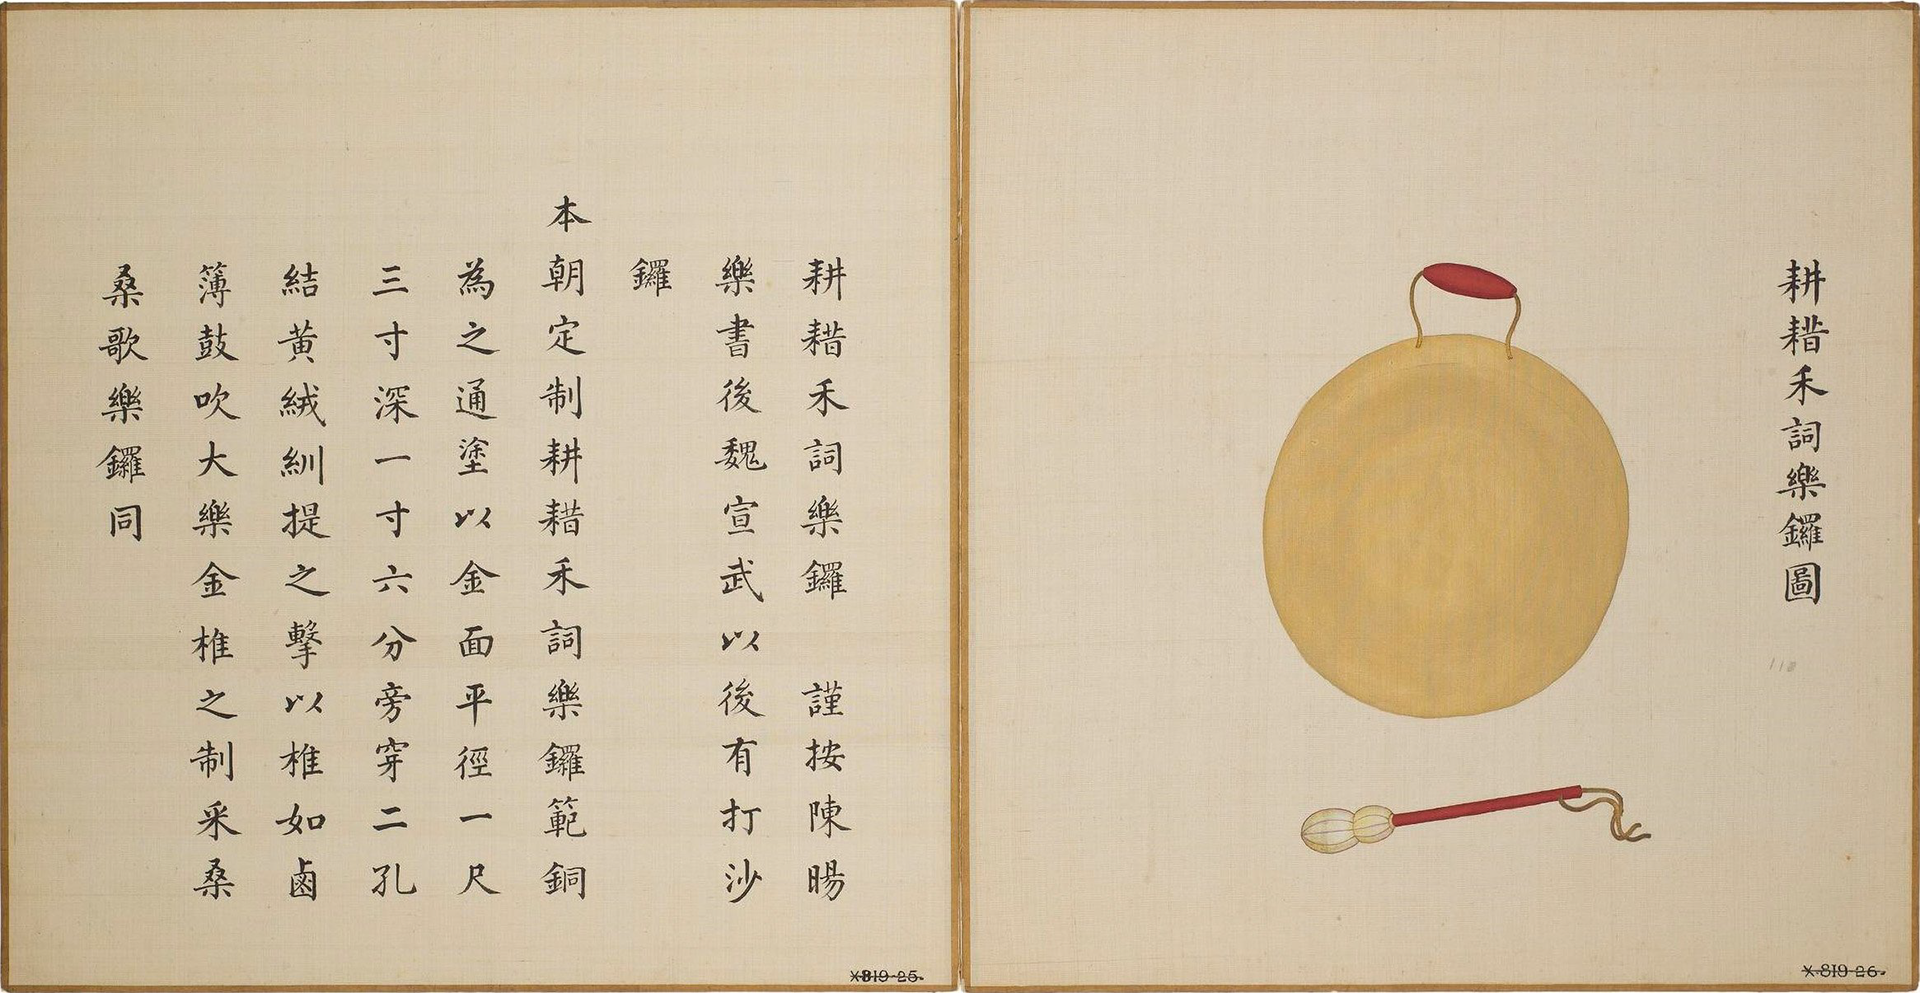 耕耤禾詞樂鑼圖
110
X-819-26.
耕耤禾詞樂鑼 謹按陳暘
樂書後魏宣武以後有打沙
鑼
本朝定制耕耤禾詞樂鑼範銅
為之通塗以金面平徑一尺
三寸深一寸六分旁穿二孔
結黃絨紃提之擊以椎如鹵
簿鼓吹大樂金椎之制采桑
桑歌樂鑼同
X-819-25.